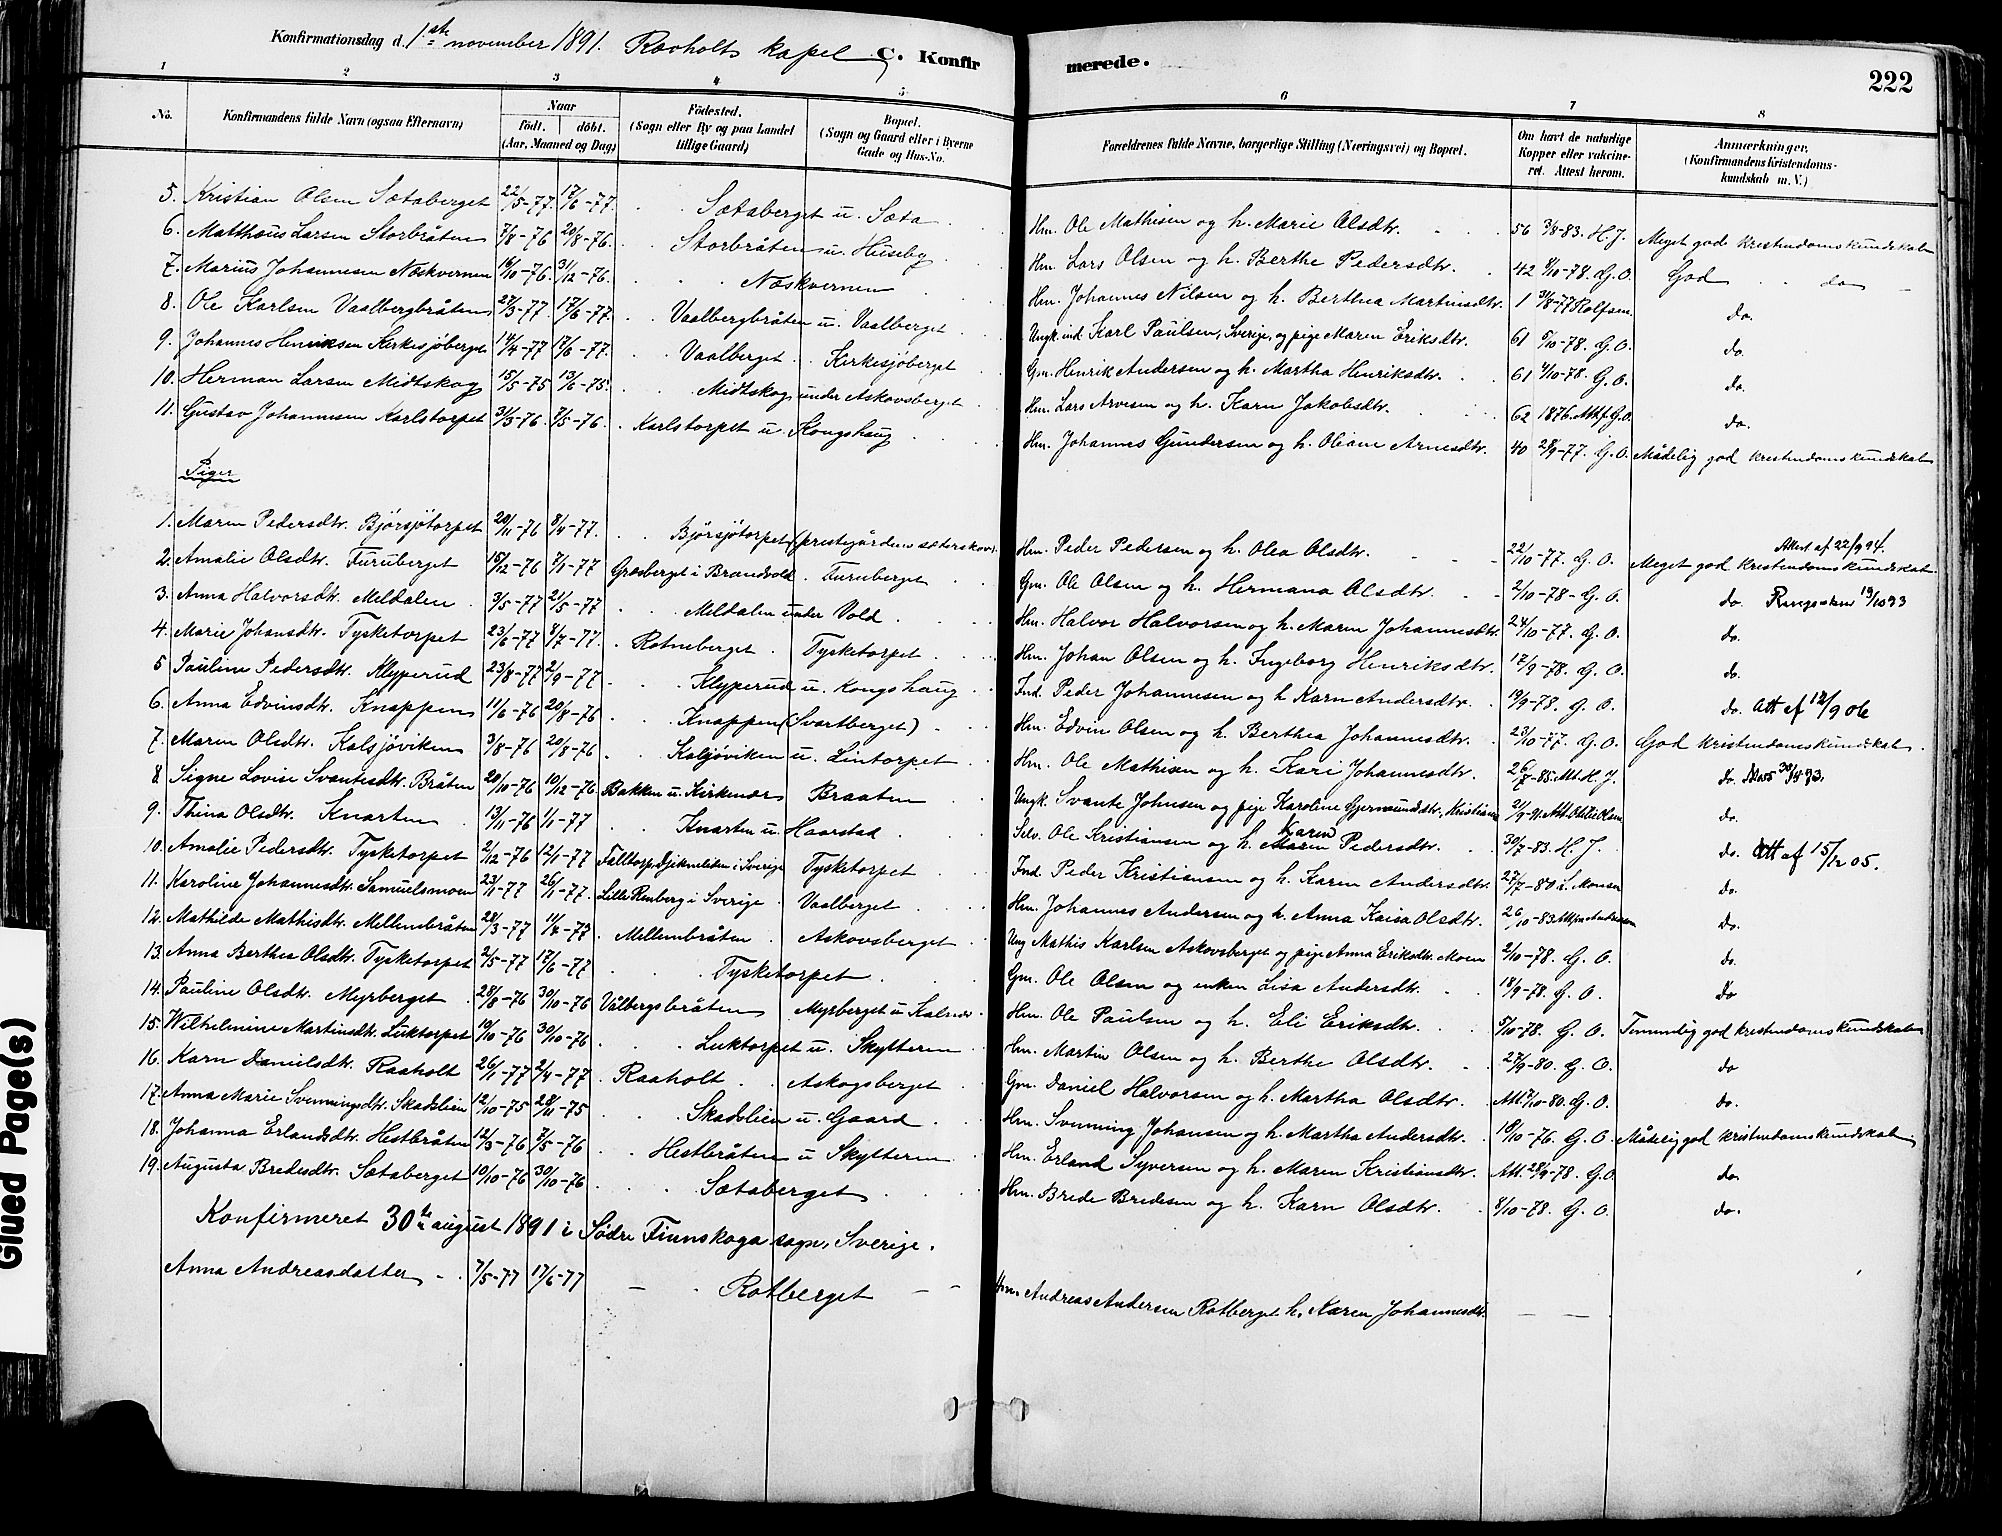 Konfirmationsdag d. 1ste november 1891. Raaholts kapel C. Konfir merede. 222
1 2 3 4 5 6 7 8
No. Konfirmandens fulde Navn (ogsaa Efternavn) Naar födt. döbt. (Aar, Maaned og Dag) Födested. (Sogn eller By og paa Landet tillige Gaard) Bopæl. (Sogn og Gaard eller i Byerne Gade og Hus-No. Forældrenes fulde Navne, borgerlige Stilling (Næringsvei) og Bopæl. Om havt de naturlige Kopper eller vakcineret. Attest herom. Anmærkninger. (Konfirmandens Kristendomskundskab m. V.)
5. Kristian Olsen Sætaberget 22/5-77. 17/6-77. Sætaberget u. Sæta Hm. Ole Mathisen og h. Marie Olsdtr. 56 3/8-83. H. J. Meget god kristendomskundskab
6. Matthæus Larsen Storbråten 7/8-76 20/8-76. Storbråten u. Huseby Hm. Lars Olsen og h. Berthe Pedersdtr. 42 8/10-78. G. O. God do
7. Marius Johannesen Næskvernen 16/10-76. 3/12-76. Næskvernen Hm. Johannes Nilsen og h. Berthea Martinsdtr. 1 31/8-77 Rolfsen. do.
8. Ole Karlsen Vaalbergbråten 27/3-77. 17/6-77. Vaalbergbråten u. Vaalberget Ungk. ind. Karl Paulsen, Sverige, og pige Maren Eriksdtr. 61 5/10-78. G. O. do.
9. Johannes Henriksen Kirkesjöberget 14/4-77 17/6-77. Vaalberget Kirkesjöberget Gm. Henrik Andersen og h. Martha Henriksdtr. 61 4/10-78. G. O. do.
10. Herman Larsen Midtskog 15/5-75 13/6-75. Midtskog under Askovsberget Hm. Lars Arvesen og h. Karn Jakobsdtr. 62 1876. Att. f. G. O. do.
11. Gustav Johannesen Karlstorpet 31/3-76. 7/5-76. Karlstorpet u. Kongshaug Hm. Johannes Gundersen og h. Oliane Arnesdtr. 40 28/9-77. G. O. Mådelig god kristendomskundskab
Piger
1. Maren Pedersdtr. Björsjötorpet 20/11-76 8/4-77. Björsjötorpet (prestegårdens sæterskov) Hm. Peder Pedersen og h. Olea Olsdtr. 22/10-77. G. O. Meget god kristendomskundskab Attest af 22/9 94.
2. Amalie Olsdtr. Furuberget 15/12-76 7/1-77 Græsberget i Brandvold Furuberget Gm. Ole Olsen og h. Hermana Olsdtr. 2/10-78- G. O. do. 19/10 93
3. Anna Halvorsdtr. Meldalen 3/5-77 21/5-77 Meldalen under Vold Hm. Halvor Halvorsen og h. Maren Johannesdtr. 24/10-77. G. O. do.
4. Marie Johansdtr. Tysketorpet 23/6-77 8/7-77. Rotneberget Tysketorpet Hm. Johan Olsen og h. Ingeborg Henriksdtr. 17/9-78. G. O. do.
5 Pauline Pedersdtr. Klyperud 23/8-77 2/9-77 Klyperud u. Kongshaug Ind. Peder Johannesen og h Karn Andersdtr. 19/9-78. G. O. do. Att af 12/9 06
6. Anna Edvinsdtr. Knappen 11/6-76 20/8-76 Knappen (Svartberget) Hm. Edvin Olsen og h. Berthea Johannesdtr. 23/10-77. G. O. God kristendomskundskab
7. Maren Olsdtr. Kalsjöviken 3/8-76 20/8-76 Kalsjöviken u. Lintorpet Hm. Ole Mathisen og h. Kari Johannesdtr. 26/7-85. Att. H. J. do. 30/4 93.
8. Signe Lovise Svantesdtr. Bråten 20/10-76 10/12-76 Bakken u. Kirkenær Braaten Ungk. Svante Johnsen og pige Karoline Gjermundsdtr., Kristiania 21/9-91. Att. Otilie Olsen do.
9. Thina Olsdtr. Knarten 13/11-76 1/1-77 Knarten u. Haarstad Selv. Ole Kristiansen og h. Karen Pedersdtr. 30/7-83. H. J. do. Att af 15/12 05.
10. Amalie Pedersdtr. Tysketorpet 2/12-76 12/1-77 i Sverige Tysketorpet Ind. Peder Kristiansen og h. Karen Andersdtr. 27/7-80. L. Monsen do.
11. Karoline Johannesdtr. Samuelsmoen 23/1-77 26/1-77. Lille Renberg i Sverige Vaalberget Hm. Johannes Andersen og h. Anna Kaisa Olsdtr. 26/10-83. Att. do.
12. Mathilde Mathisdtr. Mellembråten 28/3-77 11/4-77 Mellembråten Askovsberget Ung Mathis Karlsen Askovsberget og pige Anna Eriksdtr. Moen 2/10-78. G. O. do.
13. Anna Berthea Olsdtr. Tysketorpet 2/5-77 17/6-77 Tysketorpet Gm. Ole Olsen og enken Lisa Andersdtr. 18/9-78. G. O. do
14. Pauline Olsdtr. Myrberget 28/8-76 30/10-76 Vålbergsbråten Myrberget u. Kalnæs Hm. Ole Paulsen og h. Eli Eriksdtr. 5/10-78. G. O. Temmelig god kristendomskundskab
15. Wilhelmine Martinsdtr. Luktorpet 19/10-76 30/10-76 Luktorpet u. Skytteren Hm. Martin Olsen og h. Berthe Olsdtr. 27/9-80. G. O. do
16. Karn Danielsdtr. Raaholt 26/1-77 2/4-77 Raaholt Askogsberget Gm. Daniel Halvorsen og h. Martha Olsdtr. Att. 7/10-80. G. O. do.
17. Anna Marie Svenningsdtr. Skadslien 12/10-75 28/11-75 Skadslien u. Gaard Hm. Svenning Johansen og h. Martha Andersdtr. 10/10-76. G. O. Mådelig god kristendomskundskab
18. Johanna Erlandsdtr. Hestbråten 12/3-76 7/5-76 Hestbråten u Skytteren Hm. Erland Syversen og h. Maren Kristiansdtr. Att. 28/9-78. G. O. do.
19. Augusta Bredesdtr. Sætaberget 10/10-76 30/10-76 Sætaberget Hm. Brede Bredesen og h. Karn Olsdtr. 8/10-78. G. O. do.
Konfirmeret 30te august 1891 i Södre Finnskoga sogn, Sverige.
Anna Andreasdatter 7/5-77 17/6-77 Rotberget Hm Andreas Andersen Rotberget h. Karen Johannesdtr.
Glued Page(s)